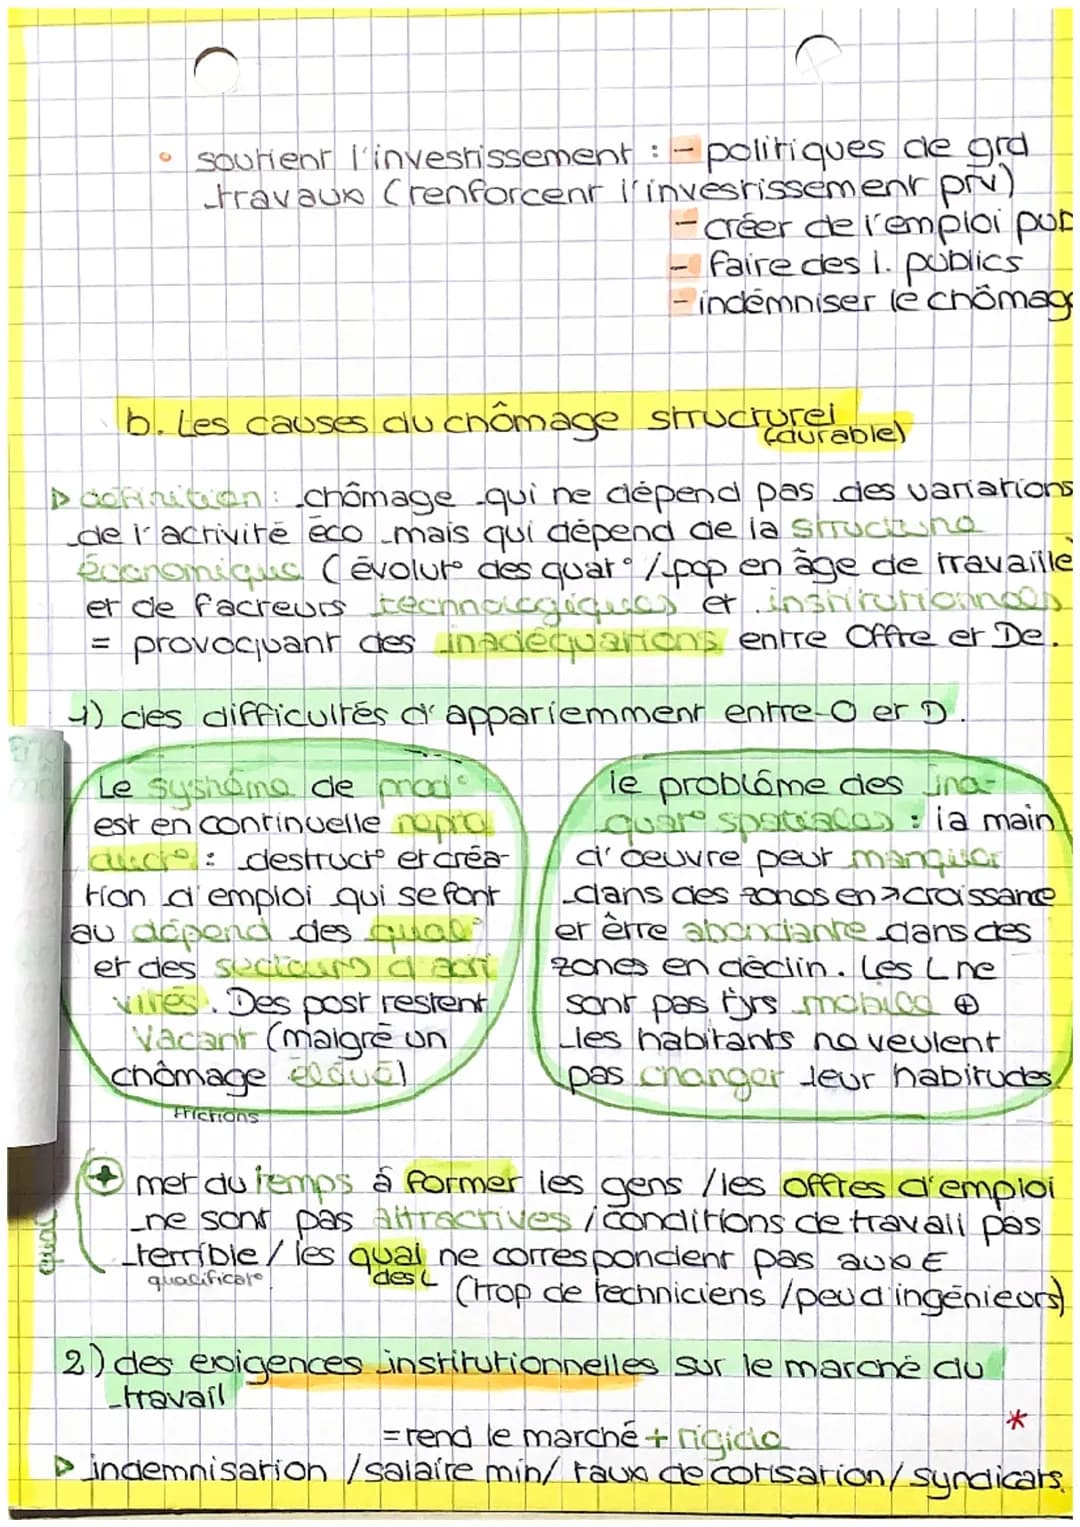 • soutient l'investissement : - politiques de grd
travaux (renforcent l'investissement prv)
- créer de l'emploi pub
- faire des I. publics
- indémniser le chômage
b. Les causes du chômage structurel
(durable)
▷ définition : chômage qui ne dépend pas des variations
de l'activité éco mais qui dépend de la structure
économique (évolut° des qual° / pop en âge de travaille
et de facteurs technologiques et institutionnels
= provoquant des inadéquations entre Offre et De.
1) des difficultés d'appariemment entre O et D.
Le système de prod°
est en continuelle repro
duct° : destruct° et créa-
tion d'emploi qui se font
au dépend des qual°
et des secteurs d'acti
vités. Des post restent
vacant (malgré un
chômage élevé)
frictions
le problème des ina-
quat° spatiales : la main
d'oeuvre peut manquer
dans des zones en ↗ croissance
et être abondante dans des
zones en déclin. Les L ne
sont pas tjrs mobile ⊕
les habitants ne veulent
pas changer leur habitudes
⊕ met du temps à former les gens / les offres d'emploi
ne sont pas attractives / conditions de travail pas
terrible / les quai ne correspondent pas aux E
qualificat° des L
(trop de techniciens / peu d'ingénieurs)
2) des exigences institutionnelles sur le marché du
travail
*
= rend le marché + rigide
▷ indemnisation / salaire min / taux de cotisation / syndicats.